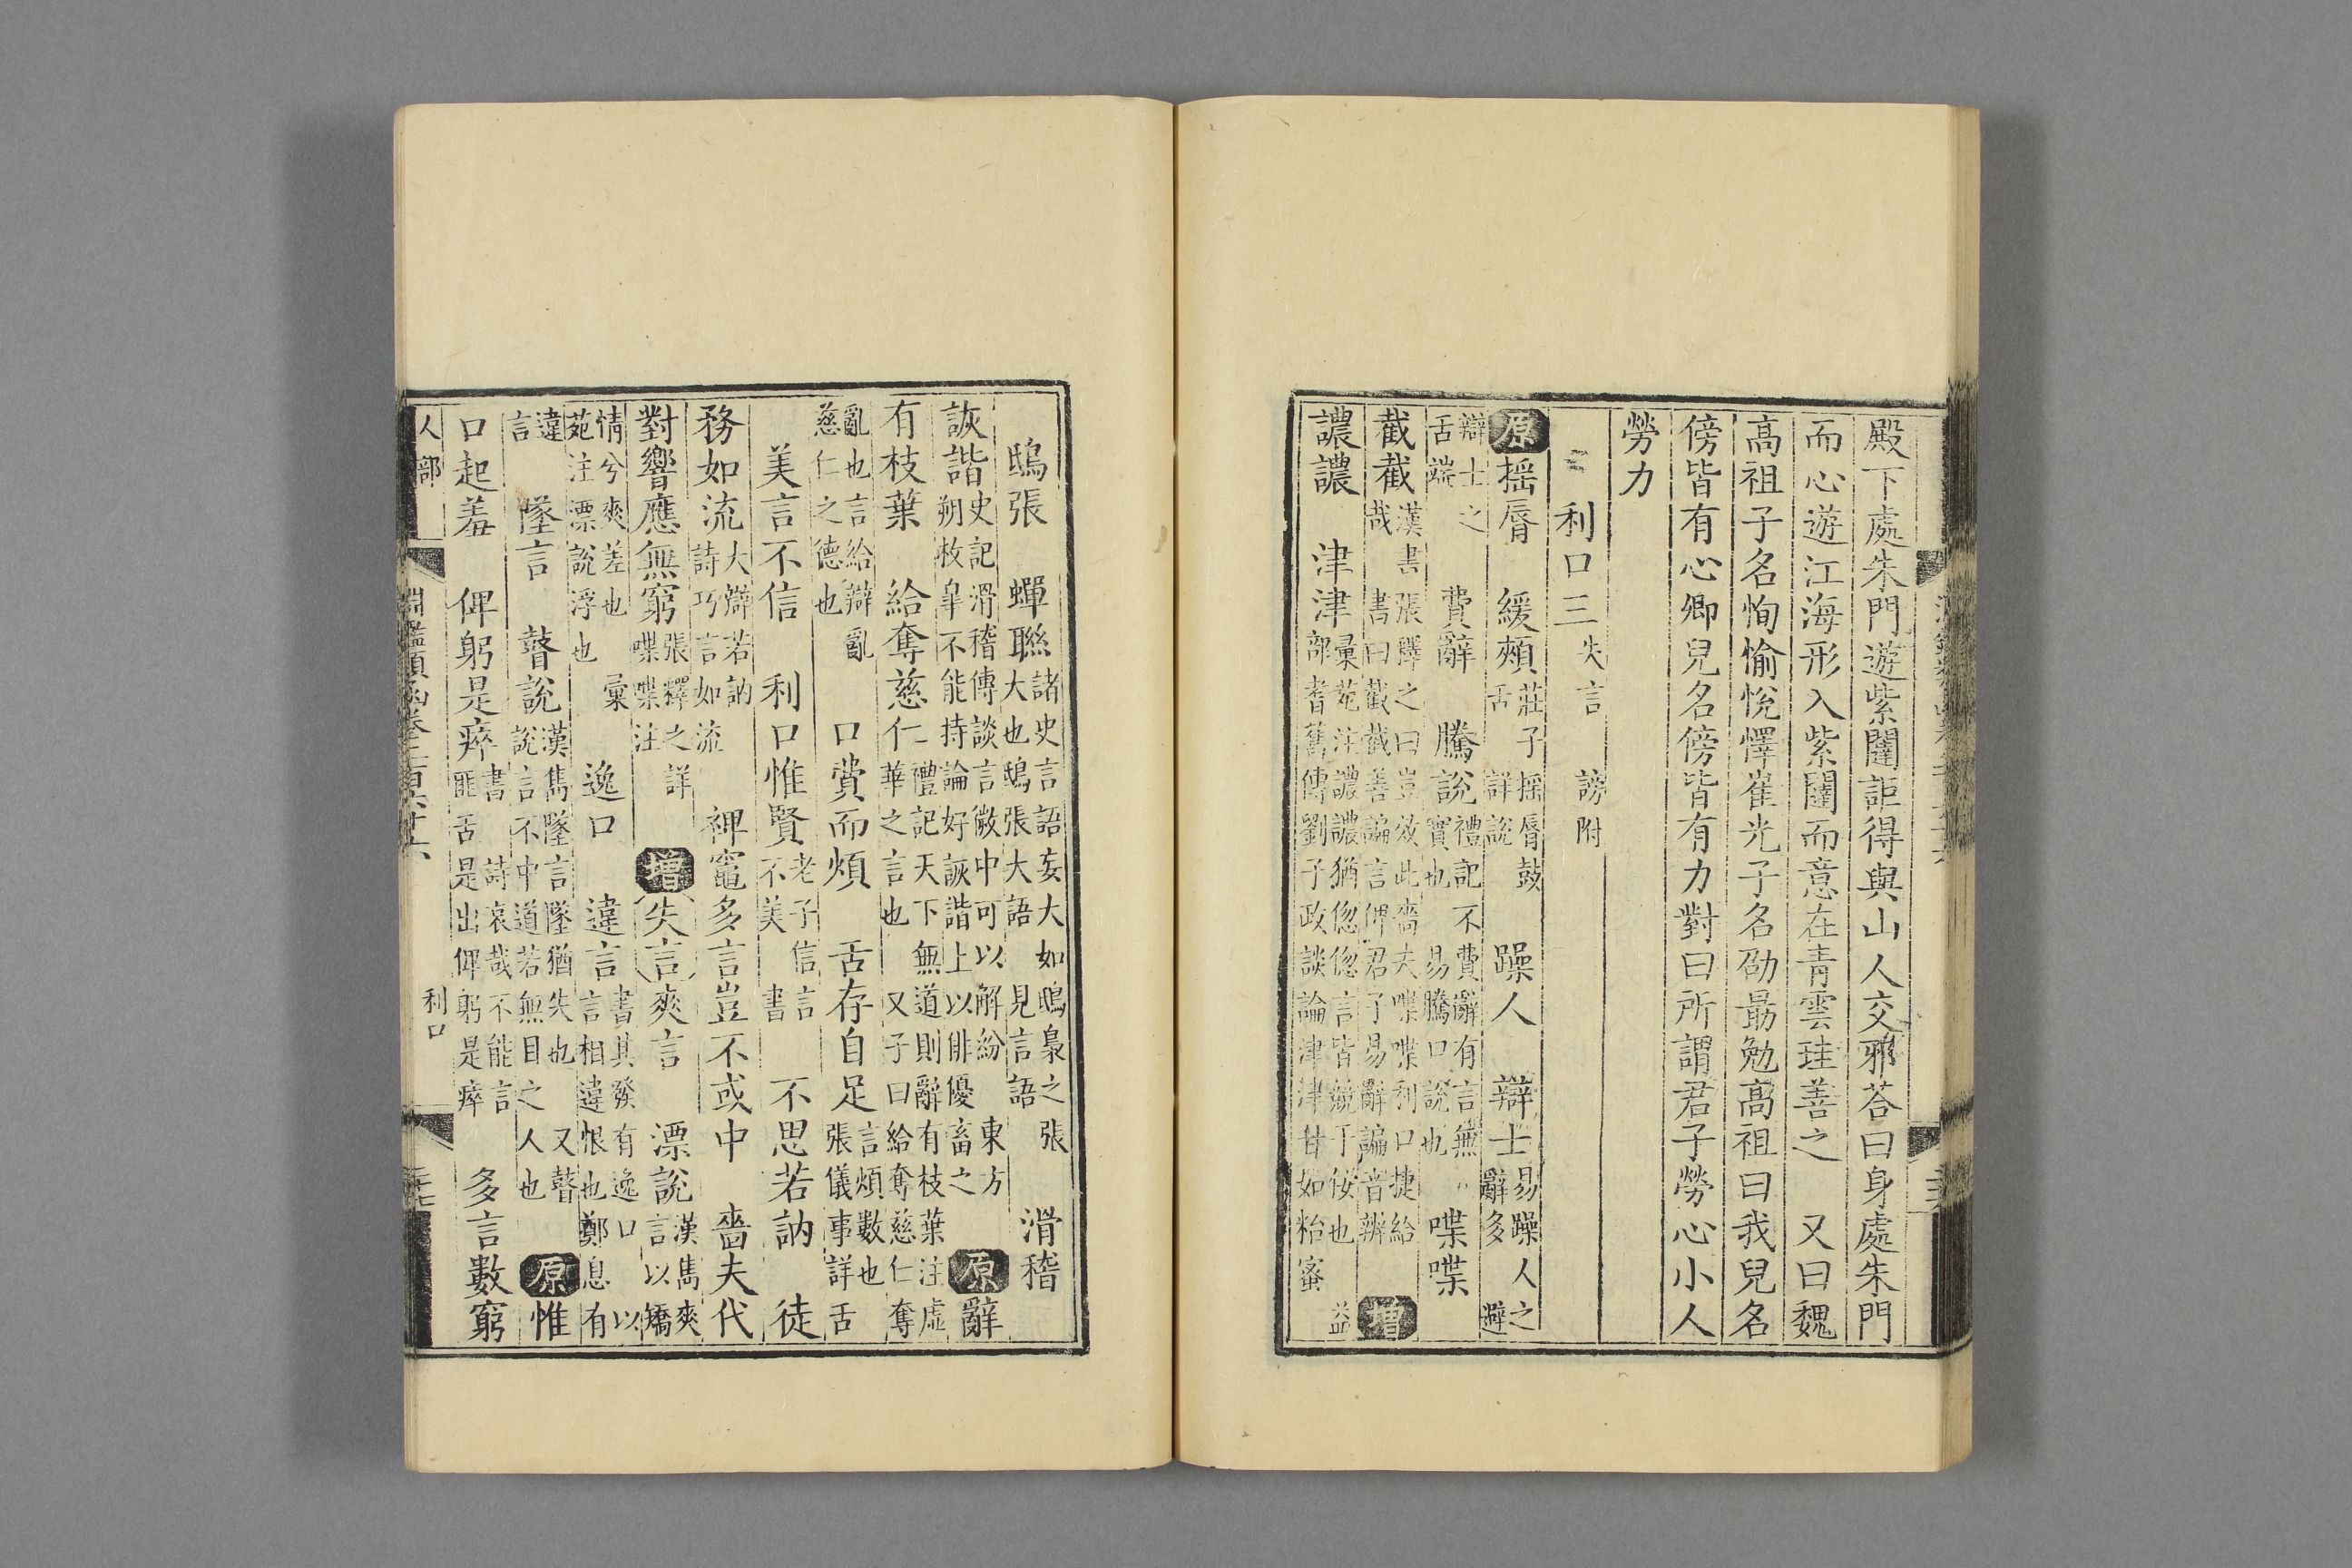 殿下處朱門遊紫闥詎得與山人交邪荅曰身處朱門
而心遊江海形入紫闥而意在青雲珪善之　又曰魏
高祖子名恂愉悅懌崔光子名劭勗勉高祖曰我兒名
傍皆有心卿兒名傍皆有力對曰所謂君子勞心小人
勞力
利口三失言　謗附
原搖脣　緩頰莊子搖脣鼓舌　詳說　躁人　辯士易躁人之辭多　避
辯士之舌端　費辭　騰說禮記不費辭有言無實也　易騰口說也　喋喋
截截漢書張釋之曰豈效此嗇夫喋喋利口捷給哉　書曰截截善諞言俾君子易辭諞音辨　增
譨譨　津津彙苑注譨譨猶偬偬言皆競于佞也　益部耆舊傳劉子政談論津津甘如粘蜜
鴟張　蟬聯諸史言語妄大如鴟梟之張大也鴟張大語　見言語　滑稽
詼諧史記滑稽傳談言微中可以解紛　東方朔枚皋不能持論好詼諧上以俳優畜之　原辭
有枝葉　給奪慈仁禮記天下無道則辭有枝葉注虛華之言也　又子曰給奪慈仁奪
亂也言給辯亂慈仁之德也　口費而煩　舌存自足言煩數也　張儀事詳舌
美言不信　利口惟賢老子信言不美　書　不思若訥　徒
務如流大辯若訥　詩巧言如流　裨竈多言豈不或中　嗇夫代
對響應無窮張釋之詳喋喋注　增失言爽言　漂說漢雋爽言以矯
情兮爽差也　彙苑注漂說浮也　逸口　違言書其發有逸口　以言相違恨也鄭息有
違言　墜言　瞽說漢雋墜言墜猶失也　又瞽說言不中道若無目之人也　原惟
口起羞　俾躬是瘁書　詩哀哉不能言匪舌是出俾躬是瘁　多言數窮
人部　淵鑑類函卷三百六　利口　二十七